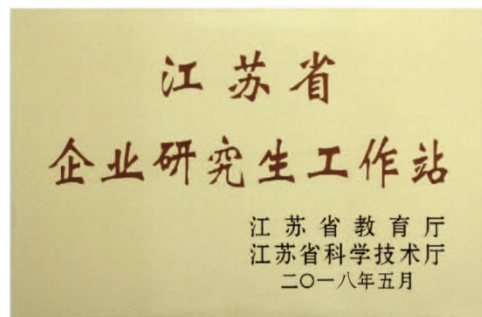 江苏省
企业研究生工作站
江苏省教育厅
江苏省科学技术厅
二〇一八年五月